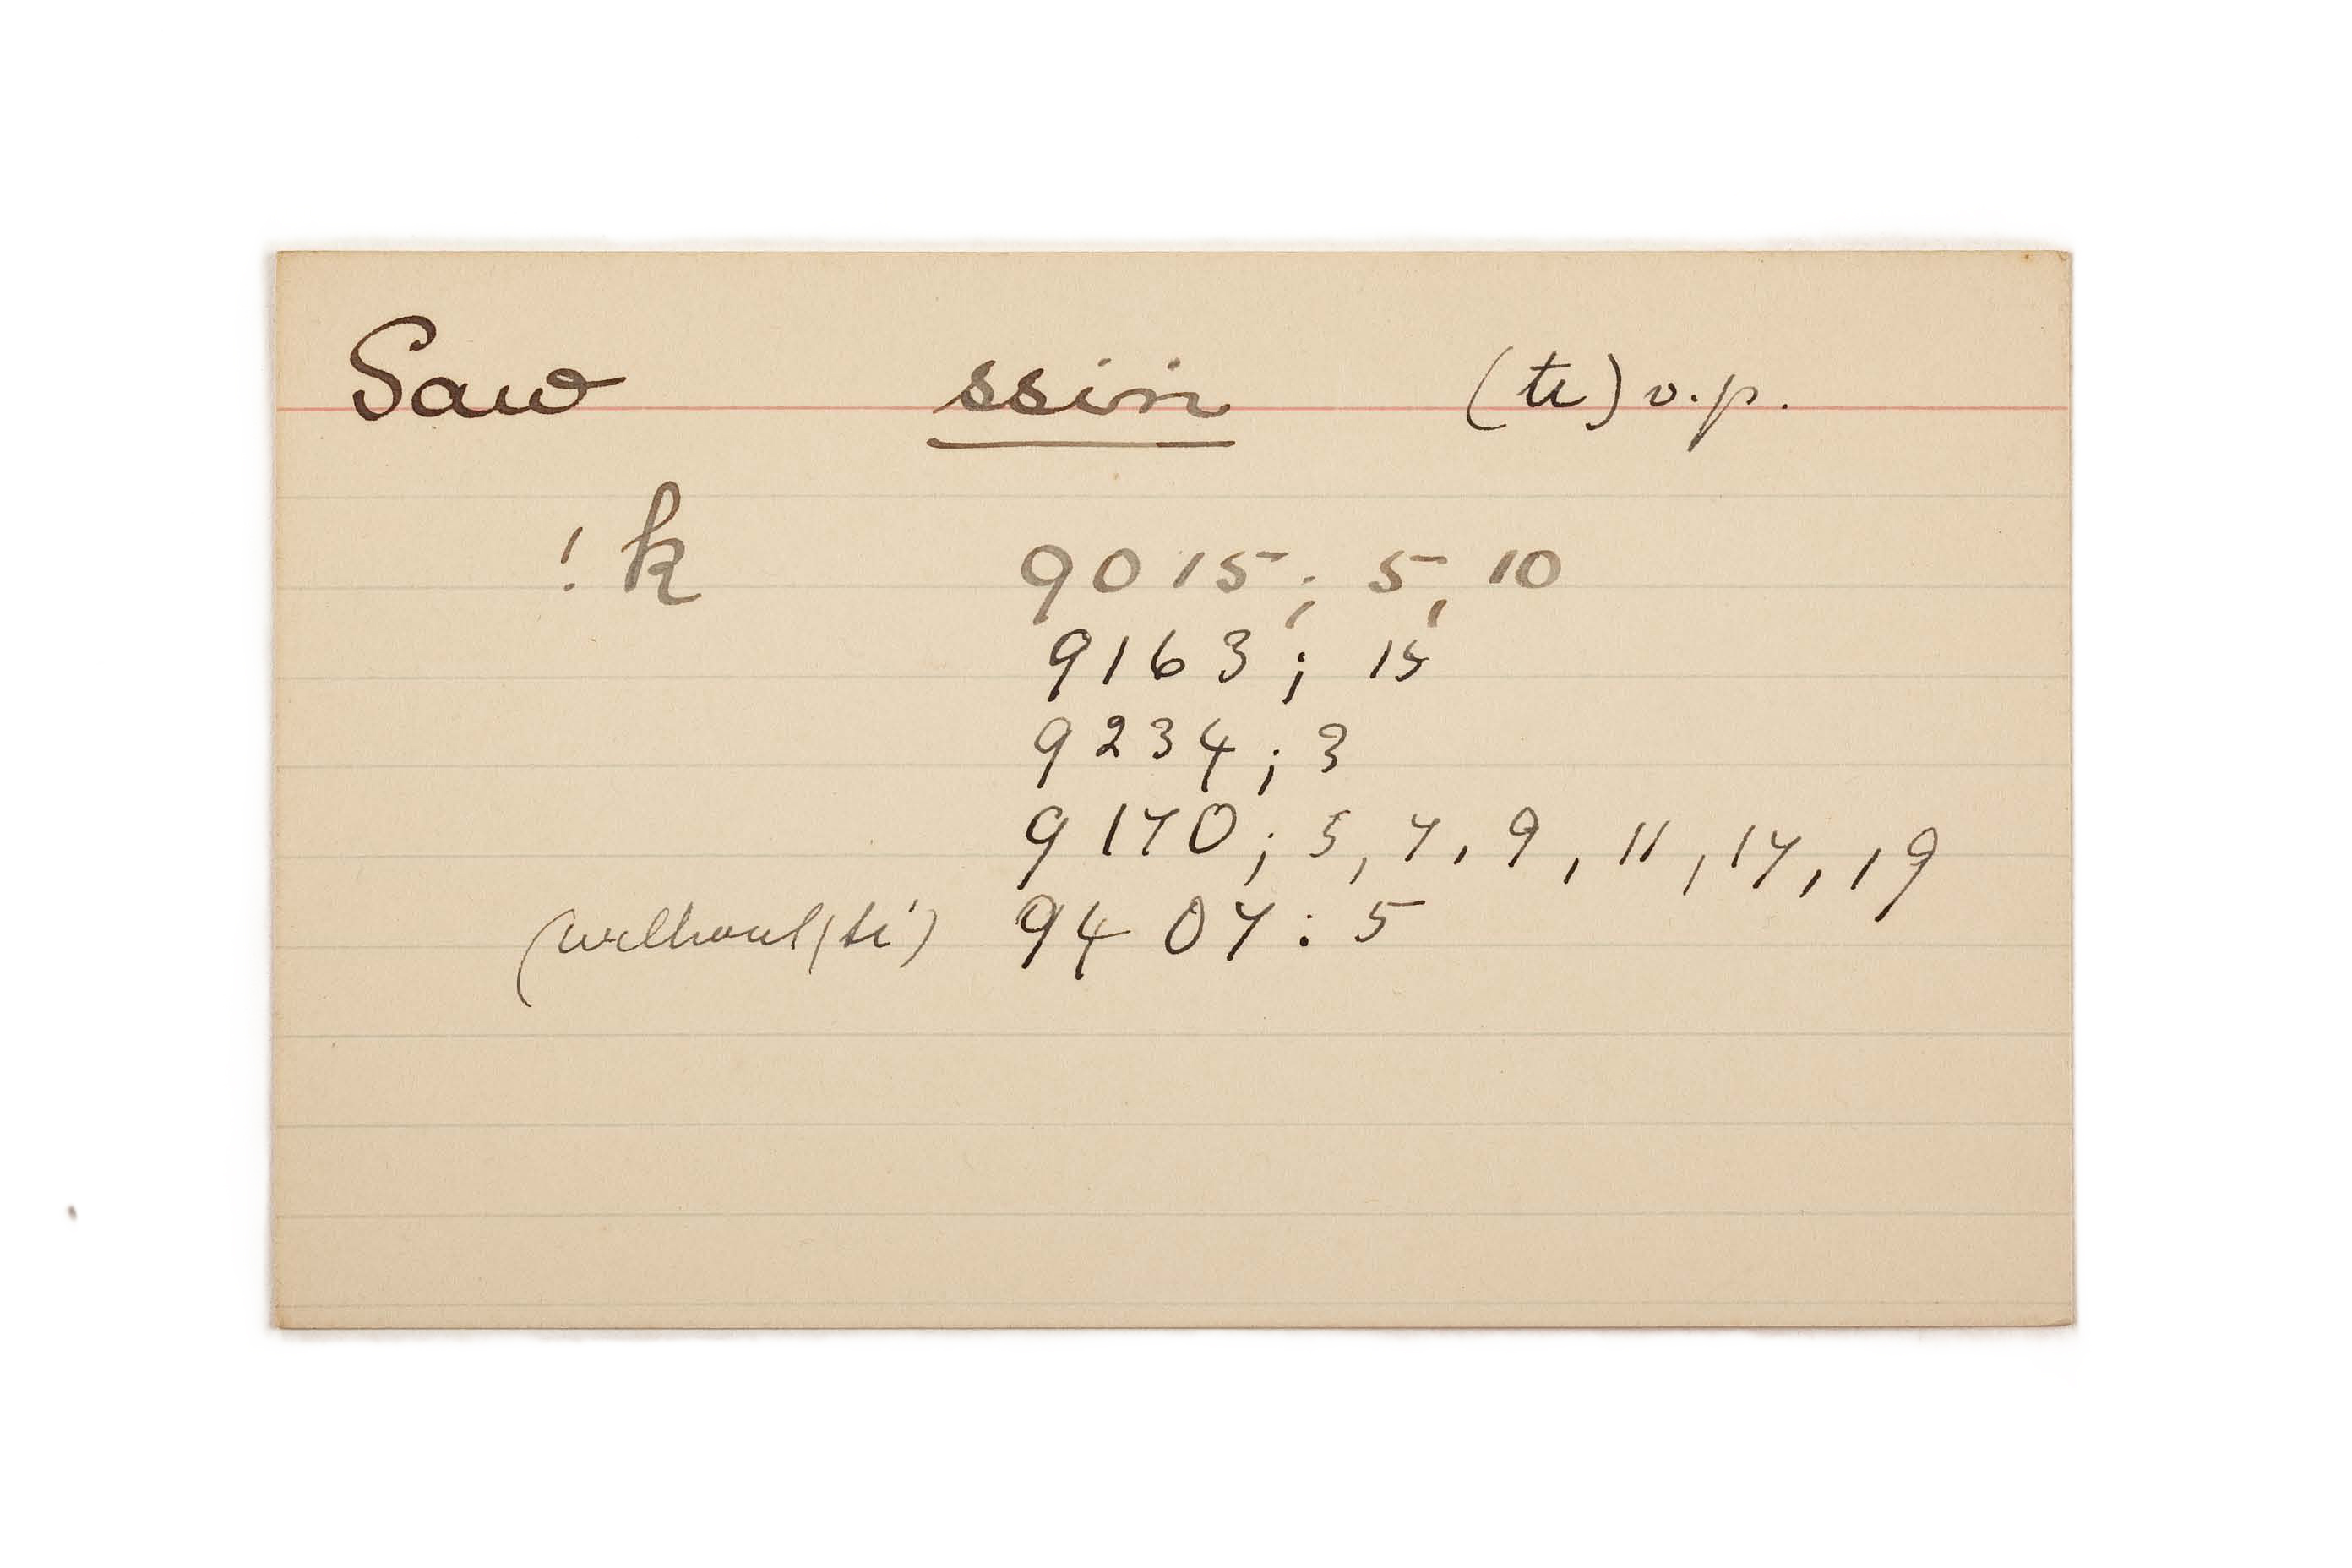 Saw ssin (ti) v.p.
!k 9015; 5, 10
9163; 15
9234; 3
9170; 5, 7, 9, 11, 17, 19
(without (ti) 9407: 5